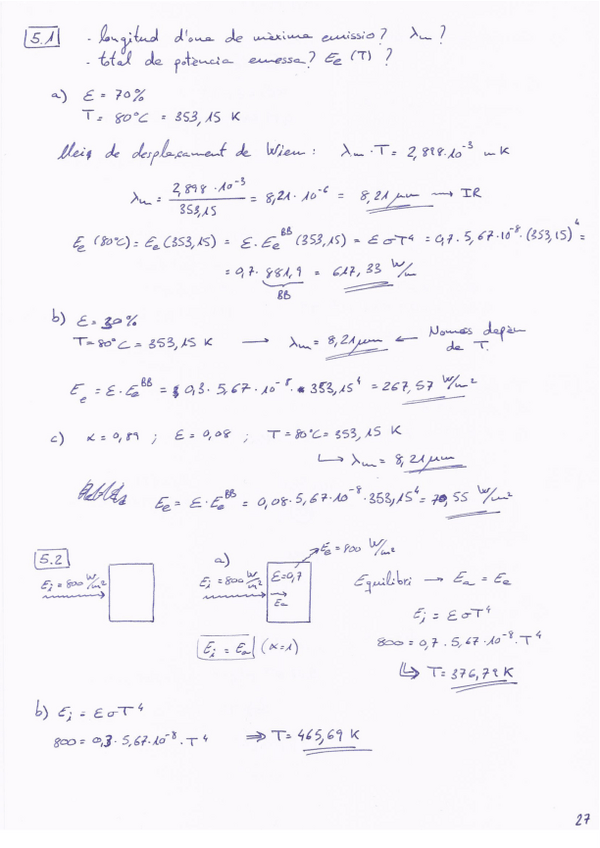 5.1 - longitud d'ona de màxima emissió? λm?
- total de potència emesa? Ee(T)?
a) ε = 70%
T = 80°C = 353,15 K
Llei de desplaçament de Wien: λm·T = 2,898·10⁻³ mK
λm = 2,898·10⁻³ / 353,15 = 8,21·10⁻⁶ = 8,21 μm → IR
Ee(80°C) = Ee(353,15) = ε·Ee^BB(353,15) = εσT⁴ = 0,7·5,67·10⁻⁸·(353,15)⁴ =
= 0,7·881,9 = 617,33 W/m
BB
b) ε = 30%
T = 80°C = 353,15 K → λm = 8,21 μm ← Només depèn
de T.
Ee = ε·Ee^BB = 0,3·5,67·10⁻⁸·353,15⁴ = 267,57 W/m²
c) α = 0,89 ; ε = 0,08 ; T = 80°C = 353,15 K
↳ λm = 8,21 μm
Ee = ε·Ee^BB = 0,08·5,67·10⁻⁸·353,15⁴ = 70,55 W/m²
5.2
Ei = 800 W/m²
a)
Ee = 800 W/m²
Ei = 800 W/m²
ε = 0,7
Ea
Ei = Ea (α = 1)
Equilibri → Ea = Ee
Ei = εσT⁴
800 = 0,7·5,67·10⁻⁸·T⁴
↳ T = 376,79 K
b) Ei = εσT⁴
800 = 0,3·5,67·10⁻⁸·T⁴ ⇒ T = 465,69 K
27